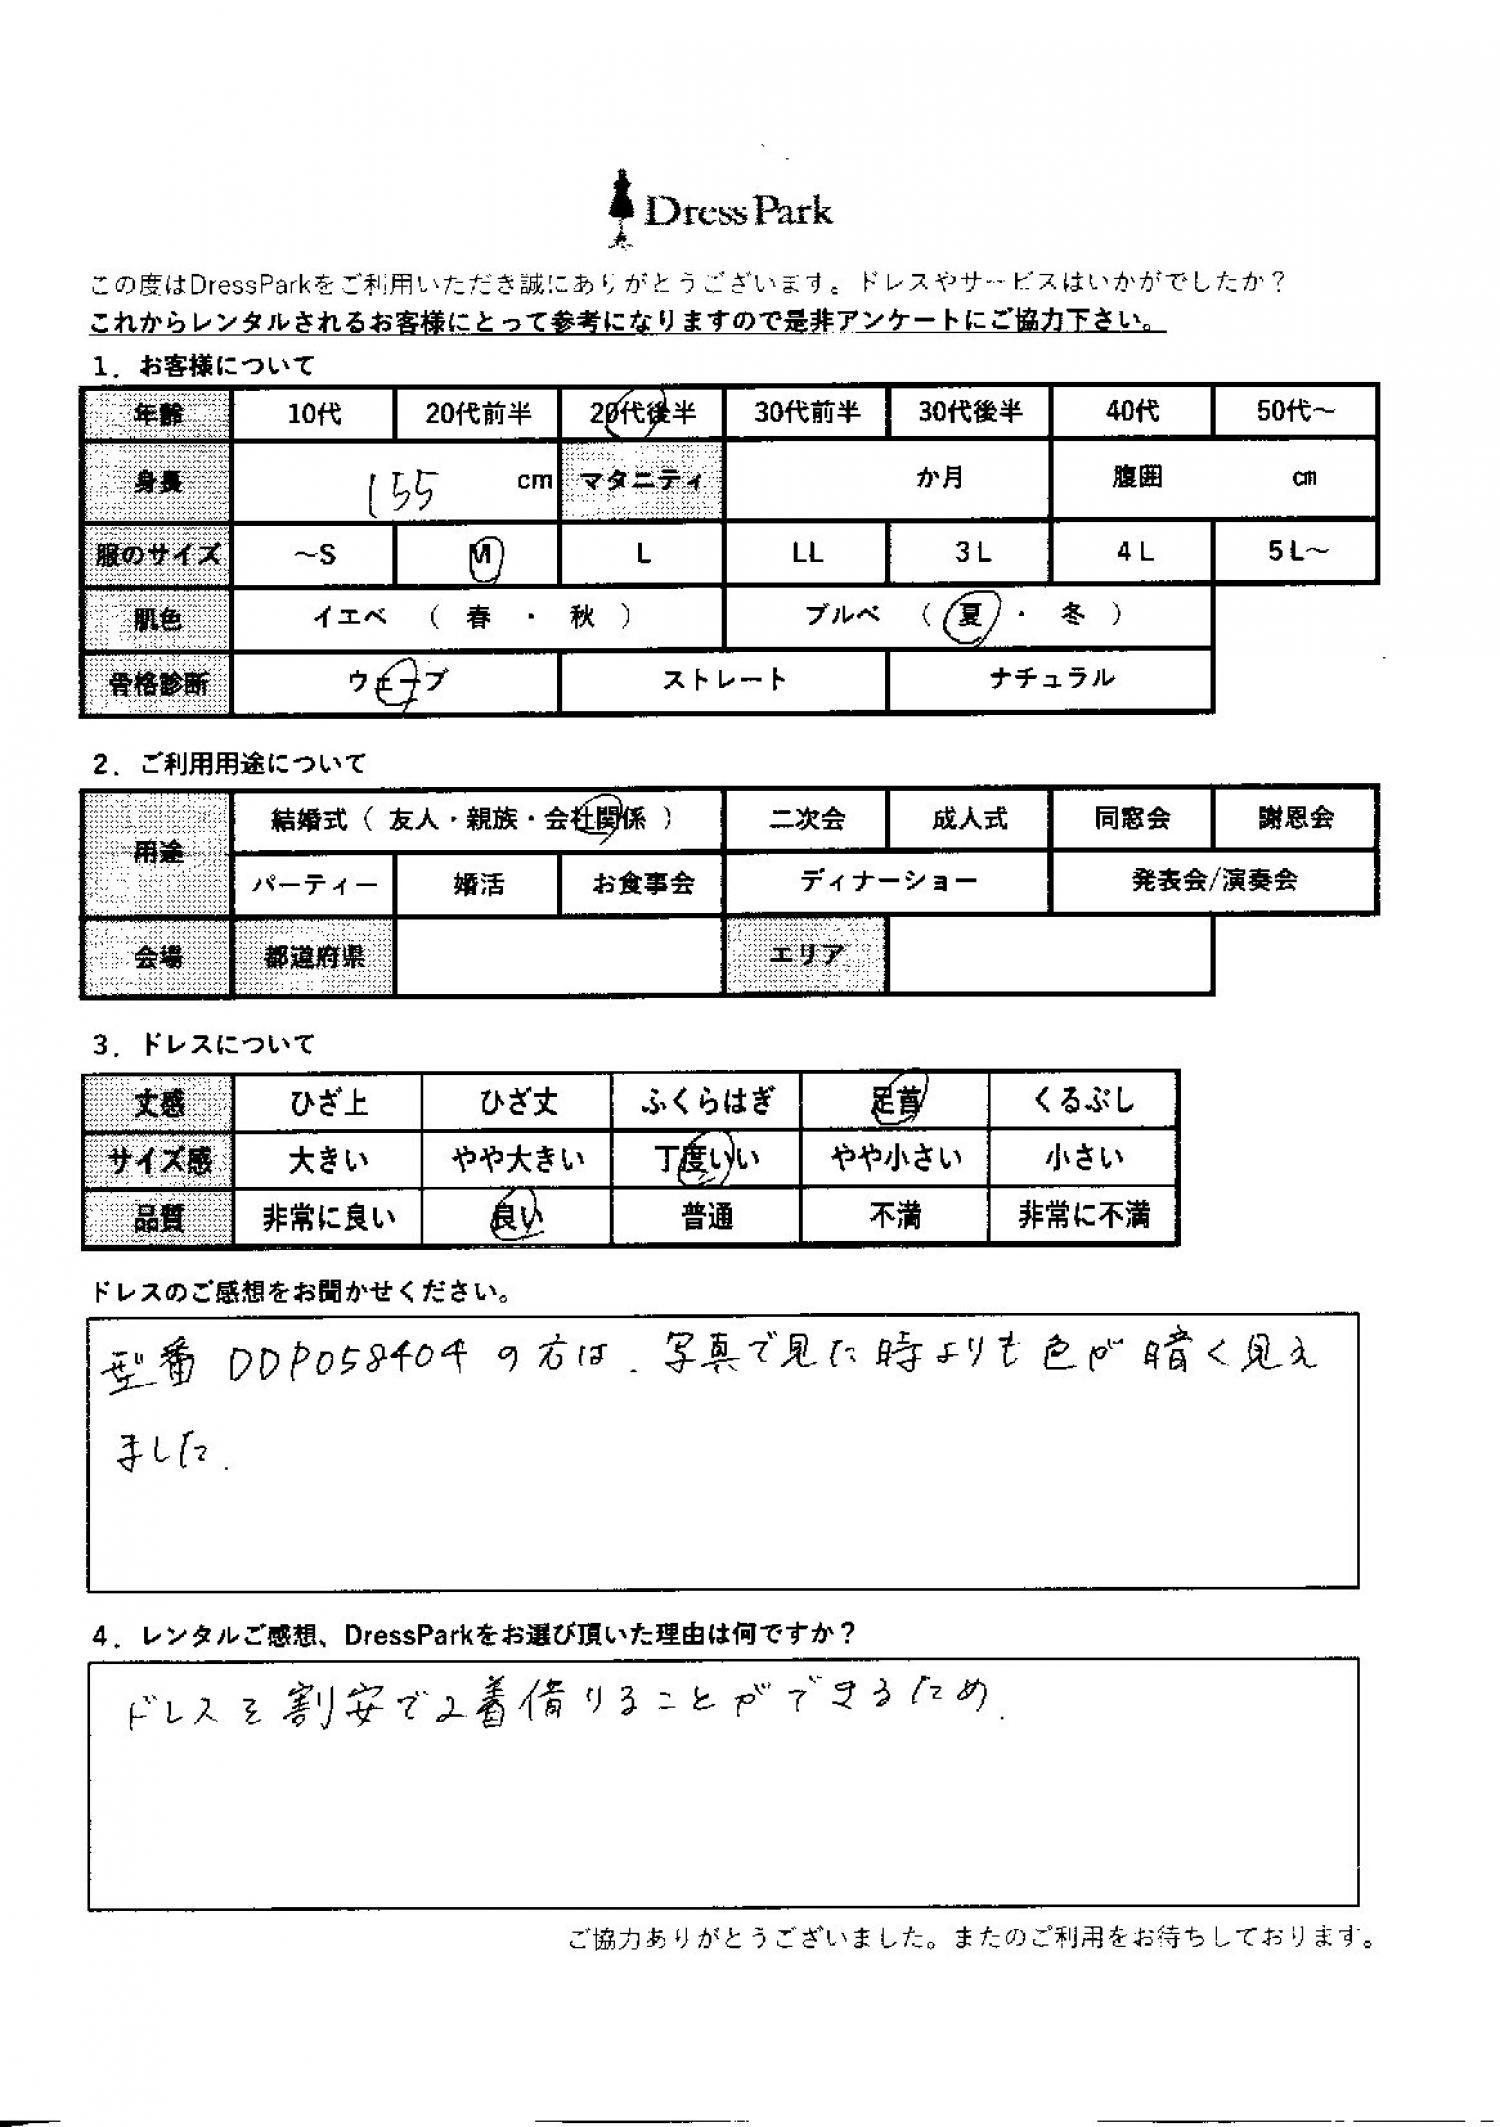 Dress Park
この度はDressParkをご利用いただき誠にありがとうございます。ドレスやサービスはいかがでしたか？
これからレンタルされるお客様にとって参考になりますので是非アンケートにご協力下さい。
1．お客様について
年齢 10代 20代前半 20代後半 30代前半 30代後半 40代 50代～
身長 155 cm マタニティ か月 腹囲 cm
服のサイズ ～S M L LL 3L 4L 5L～
肌色 イエベ （ 春 ・ 秋 ） ブルベ （ 夏 ・ 冬 ）
骨格診断 ウェーブ ストレート ナチュラル
2．ご利用用途について
用途 結婚式（ 友人・親族・会社関係 ） 二次会 成人式 同窓会 謝恩会
パーティー 婚活 お食事会 ディナーショー 発表会/演奏会
会場 都道府県 エリア
3．ドレスについて
丈感 ひざ上 ひざ丈 ふくらはぎ 足首 くるぶし
サイズ感 大きい やや大きい 丁度いい やや小さい 小さい
品質 非常に良い 良い 普通 不満 非常に不満
ドレスのご感想をお聞かせください。
型番 DDP058404 の方は、写真で見た時よりも色が暗く見え
ました。
4．レンタルご感想、DressParkをお選び頂いた理由は何ですか？
ドレスを割安で2着借りることができるため。
ご協力ありがとうございました。またのご利用をお待ちしております。